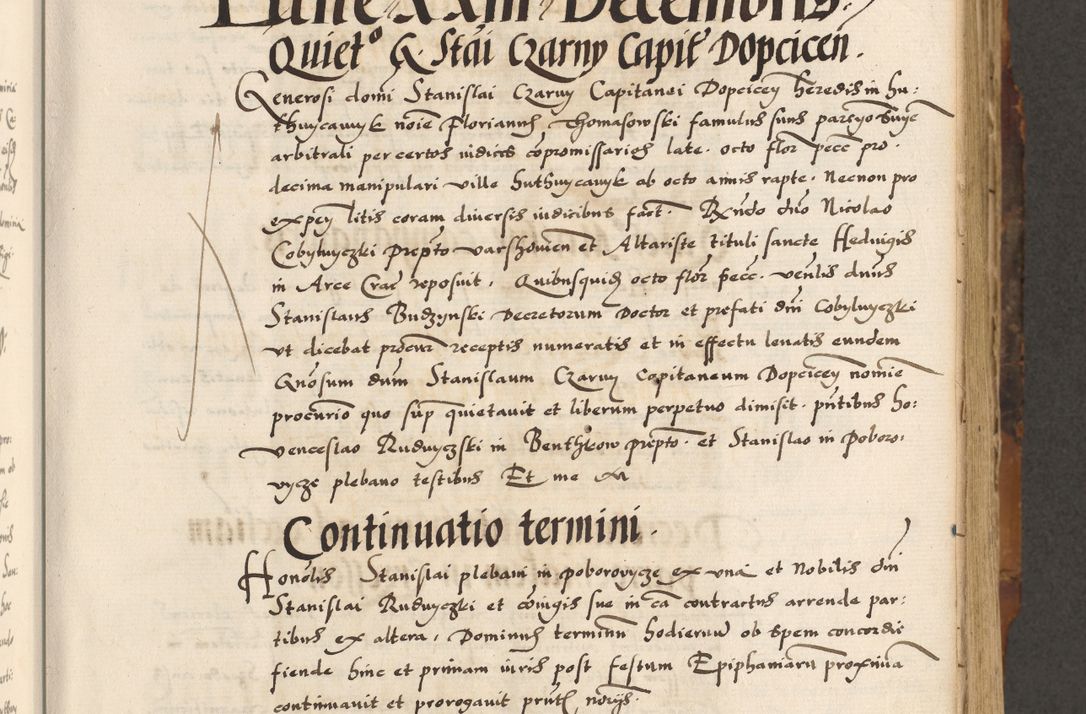 Lune XXIII Decembris.
Quietº G. Stãi Czarny Capit Dopcicen.
Generosi domi Stanislai Czarny Capitanei Dopcicen heredis in hu:
thwycawyk noie Florianus Thomasowski famulus suus
arbitrali per certos iudices cõpromissarios late. octo flor pecc pro.
decima manipulari ville huthwycawyk ab octo annis rapte. Necnon pro
expen litis coram diversis iudicibus fact. Rxndo dno Nicolao
Cobylwyczki prepto varshovien et Altariste tituli sancte Hedvigis
in Arce Crac reposuit. Quibusquid octo flor pecc. venlis dnus
Stanislaus Budzynski Decretorum Doctor et prefati dni Cobylwyczki
ut dicebat procur receptis numeratis et in effectu levatis eundem
Gnosum dum Stanislaum Czarny Capitaneum Dopcicen nomie
procurio quo sup quietavit et liberum perpetuo dimisit. pntibus ho:
venceslao Rudwyczski in Benthkow prepto. et Stanislao in poboro:
vycze plebano testibus Et me
Continuatio termini.
Honolis Stanislai plebani in poborovycze ex una et Nobilis dni
Stanislai Rudwyczki et coingis sue in ca contractus arrende par:
tibus ex altera. Dominus terminu hodiernu ob spem concordie
fiende hinc et primam iuris post festum Epiphaniaru proxima
continuavit et prorogavit pntib